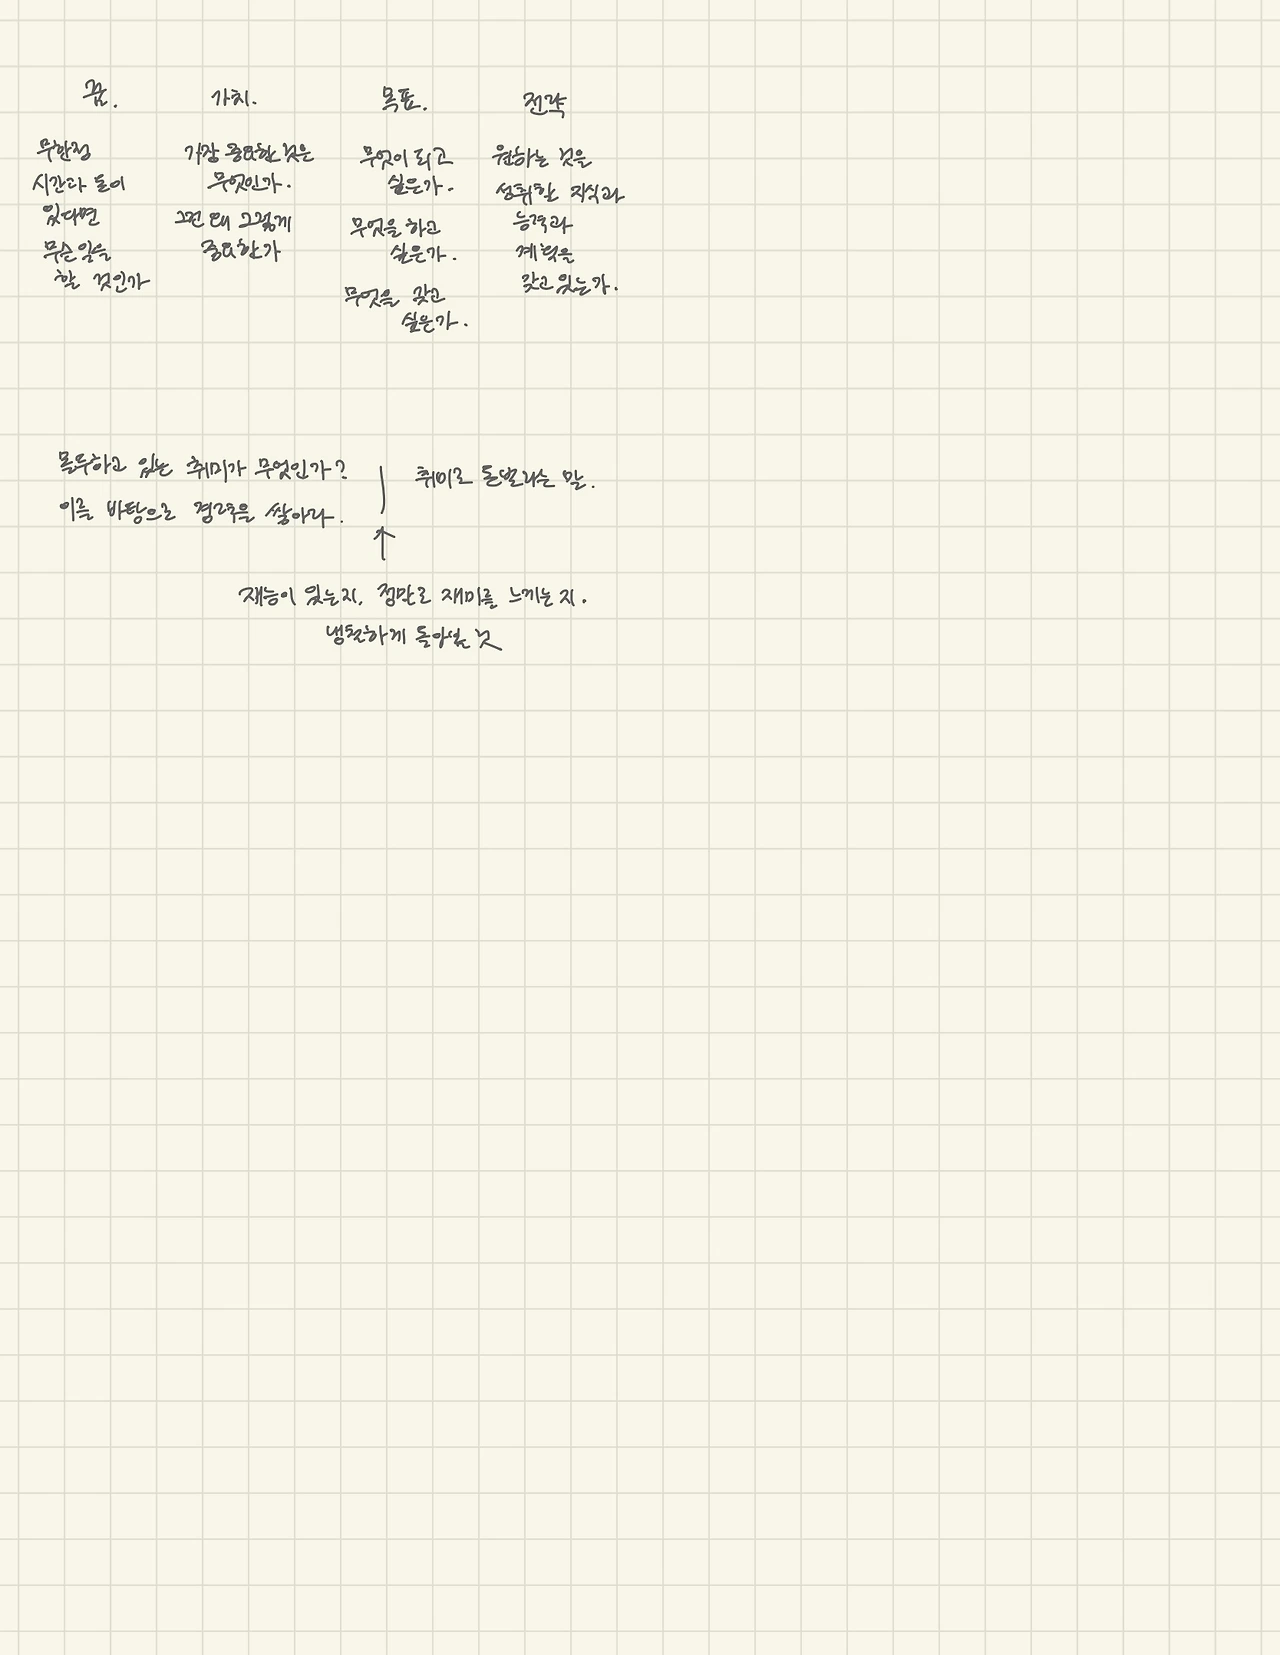 꿈.
무한정
시간과 돈이
있다면
무슨 일을
할 것인가
가치.
가장 중요한 것은
무엇인가.
그건 왜 그렇게
중요한가
목표.
무엇이 되고
싶은가.
무엇을 하고
싶은가.
무엇을 갖고
싶은가.
전략
원하는 것을
성취할 지식과
능력과
계획을
갖고 있는가.
몰두하고 있는 취미가 무엇인가?
이를 바탕으로 경력을 쌓아라.
취미로 돈벌라는 말.
↑
재능이 있는지, 정말로 재미를 느끼는지.
냉철하게 돌아볼 것